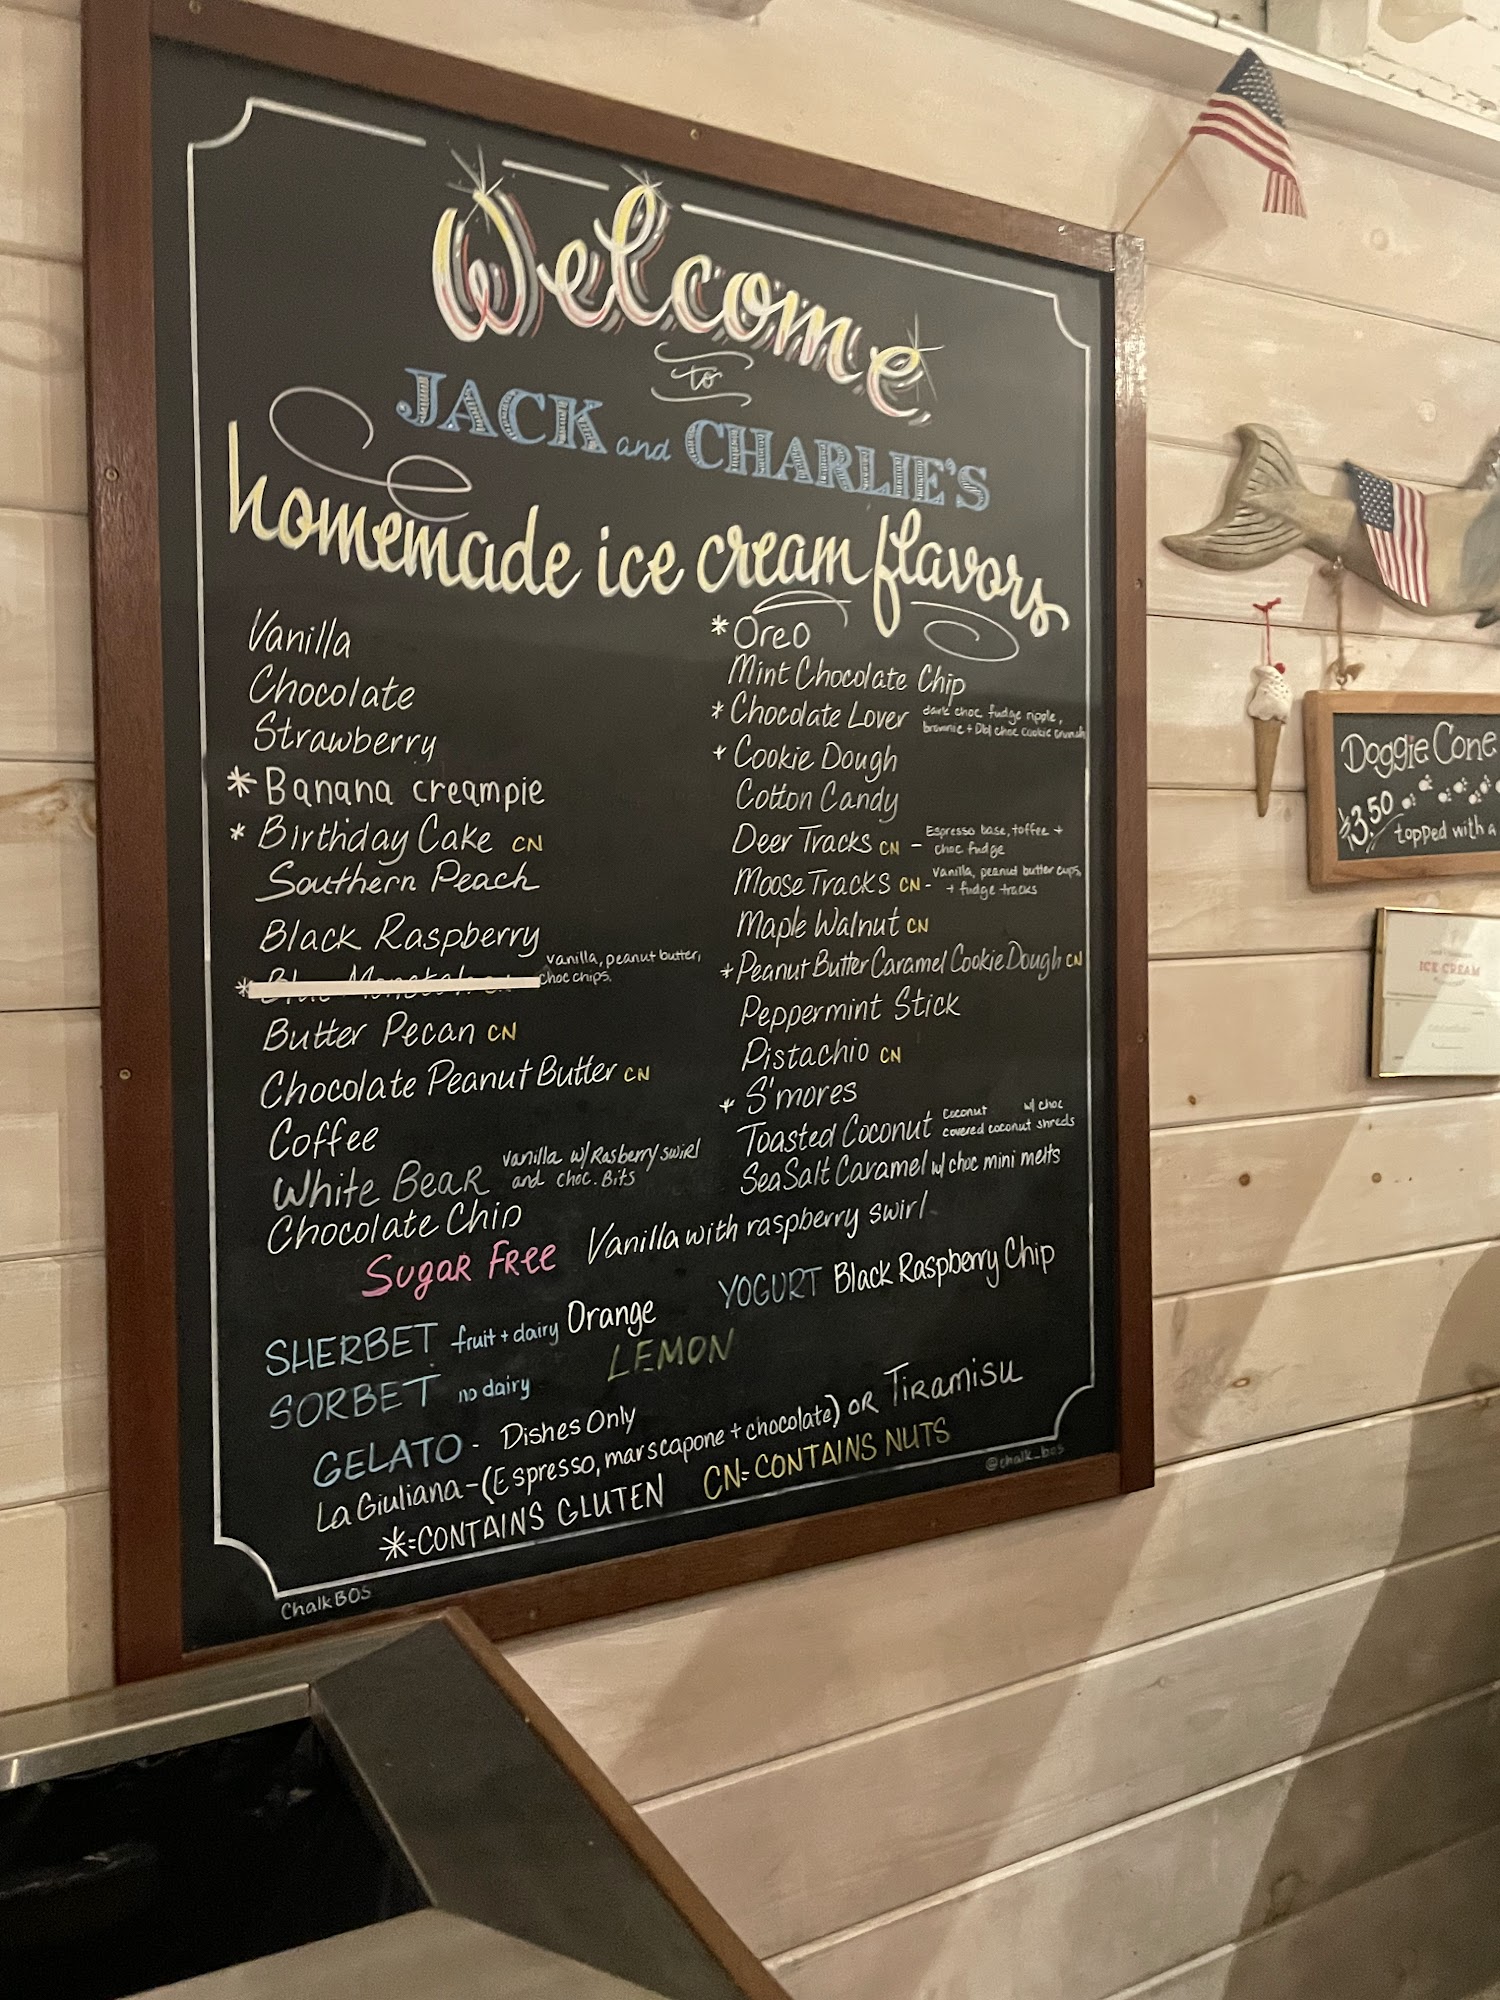 Welcome
to
JACK and CHARLIE'S
homemade ice cream flavors
Vanilla
Chocolate
Strawberry
* Banana creampie
* Birthday Cake CN
Southern Peach
Black Raspberry
* vanilla, peanut butter,
choc chips.
Butter Pecan CN
Chocolate Peanut Butter CN
Coffee
White Bear vanilla w/ Rasberry swirl
and choc. Bits
Chocolate Chip
* Oreo
Mint Chocolate Chip
* Chocolate Lover dark choc fudge ripple,
brownie + Dbl choc cookie crunch
* Cookie Dough
Cotton Candy
Deer Tracks CN - Espresso base, toffee +
choc fudge
Moose Tracks CN - Vanilla, peanut butter cups,
+ fudge tracks
Maple Walnut CN
* Peanut Butter Caramel Cookie Dough CN
Peppermint Stick
Pistachio CN
* S'mores
Toasted Coconut Coconut w/ choc
covered coconut shreds
Sea Salt Caramel w/ choc mini melts
Sugar Free Vanilla with raspberry swirl
YOGURT Black Raspberry Chip
SHERBET fruit + dairy Orange
SORBET no dairy LEMON
GELATO - Dishes Only
La Giuliana - (Espresso, marscapone + chocolate) OR Tiramisu
*=CONTAINS GLUTEN CN= CONTAINS NUTS
@chalk_bos
ChalkBOS
Doggie Cone
3.50
topped with a
ICE CREAM